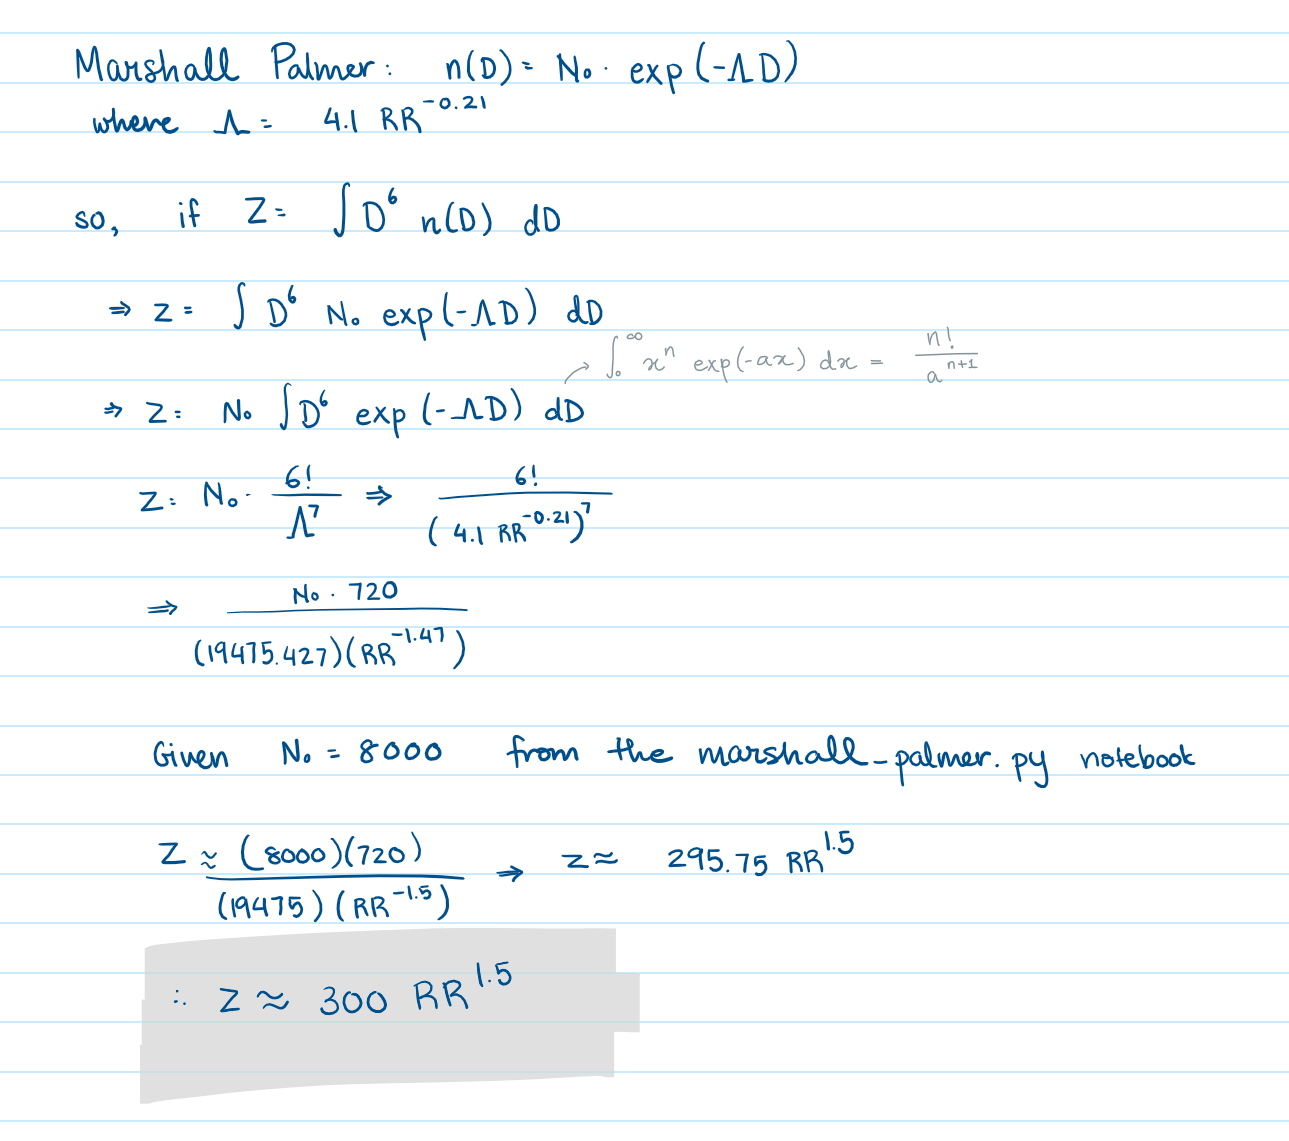 Marshall Palmer: n(D) = N₀ · exp(-ΛD)
where Λ = 4.1 RR^-0.21
so, if Z = ∫D⁶ n(D) dD
⇒ Z = ∫ D⁶ N₀ exp(-ΛD) dD
∫₀^∞ xⁿ exp(-ax) dx = n!/a^(n+1)
⇒ Z = N₀ ∫D⁶ exp(-ΛD) dD
Z = N₀ · 6!/Λ⁷ ⇒ 6!/(4.1 RR^-0.21)⁷
⇒ N₀ · 720/(19475.427)(RR^-1.47)
Given N₀ = 8000 from the marshall_palmer.py notebook
Z ≈ (8000)(720)/(19475)(RR^-1.5) → Z ≈ 295.75 RR^1.5
∴ Z ≈ 300 RR^1.5